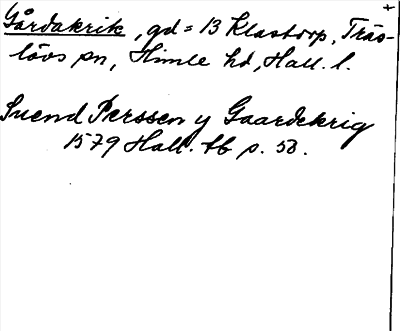 Gårdakrik, gd = 13 Klastorp, Träs-
lövs sn, Himle hd, Hall. l.
Suend Perssen y Gaardekrig
1579 Hall. tb p. 53.